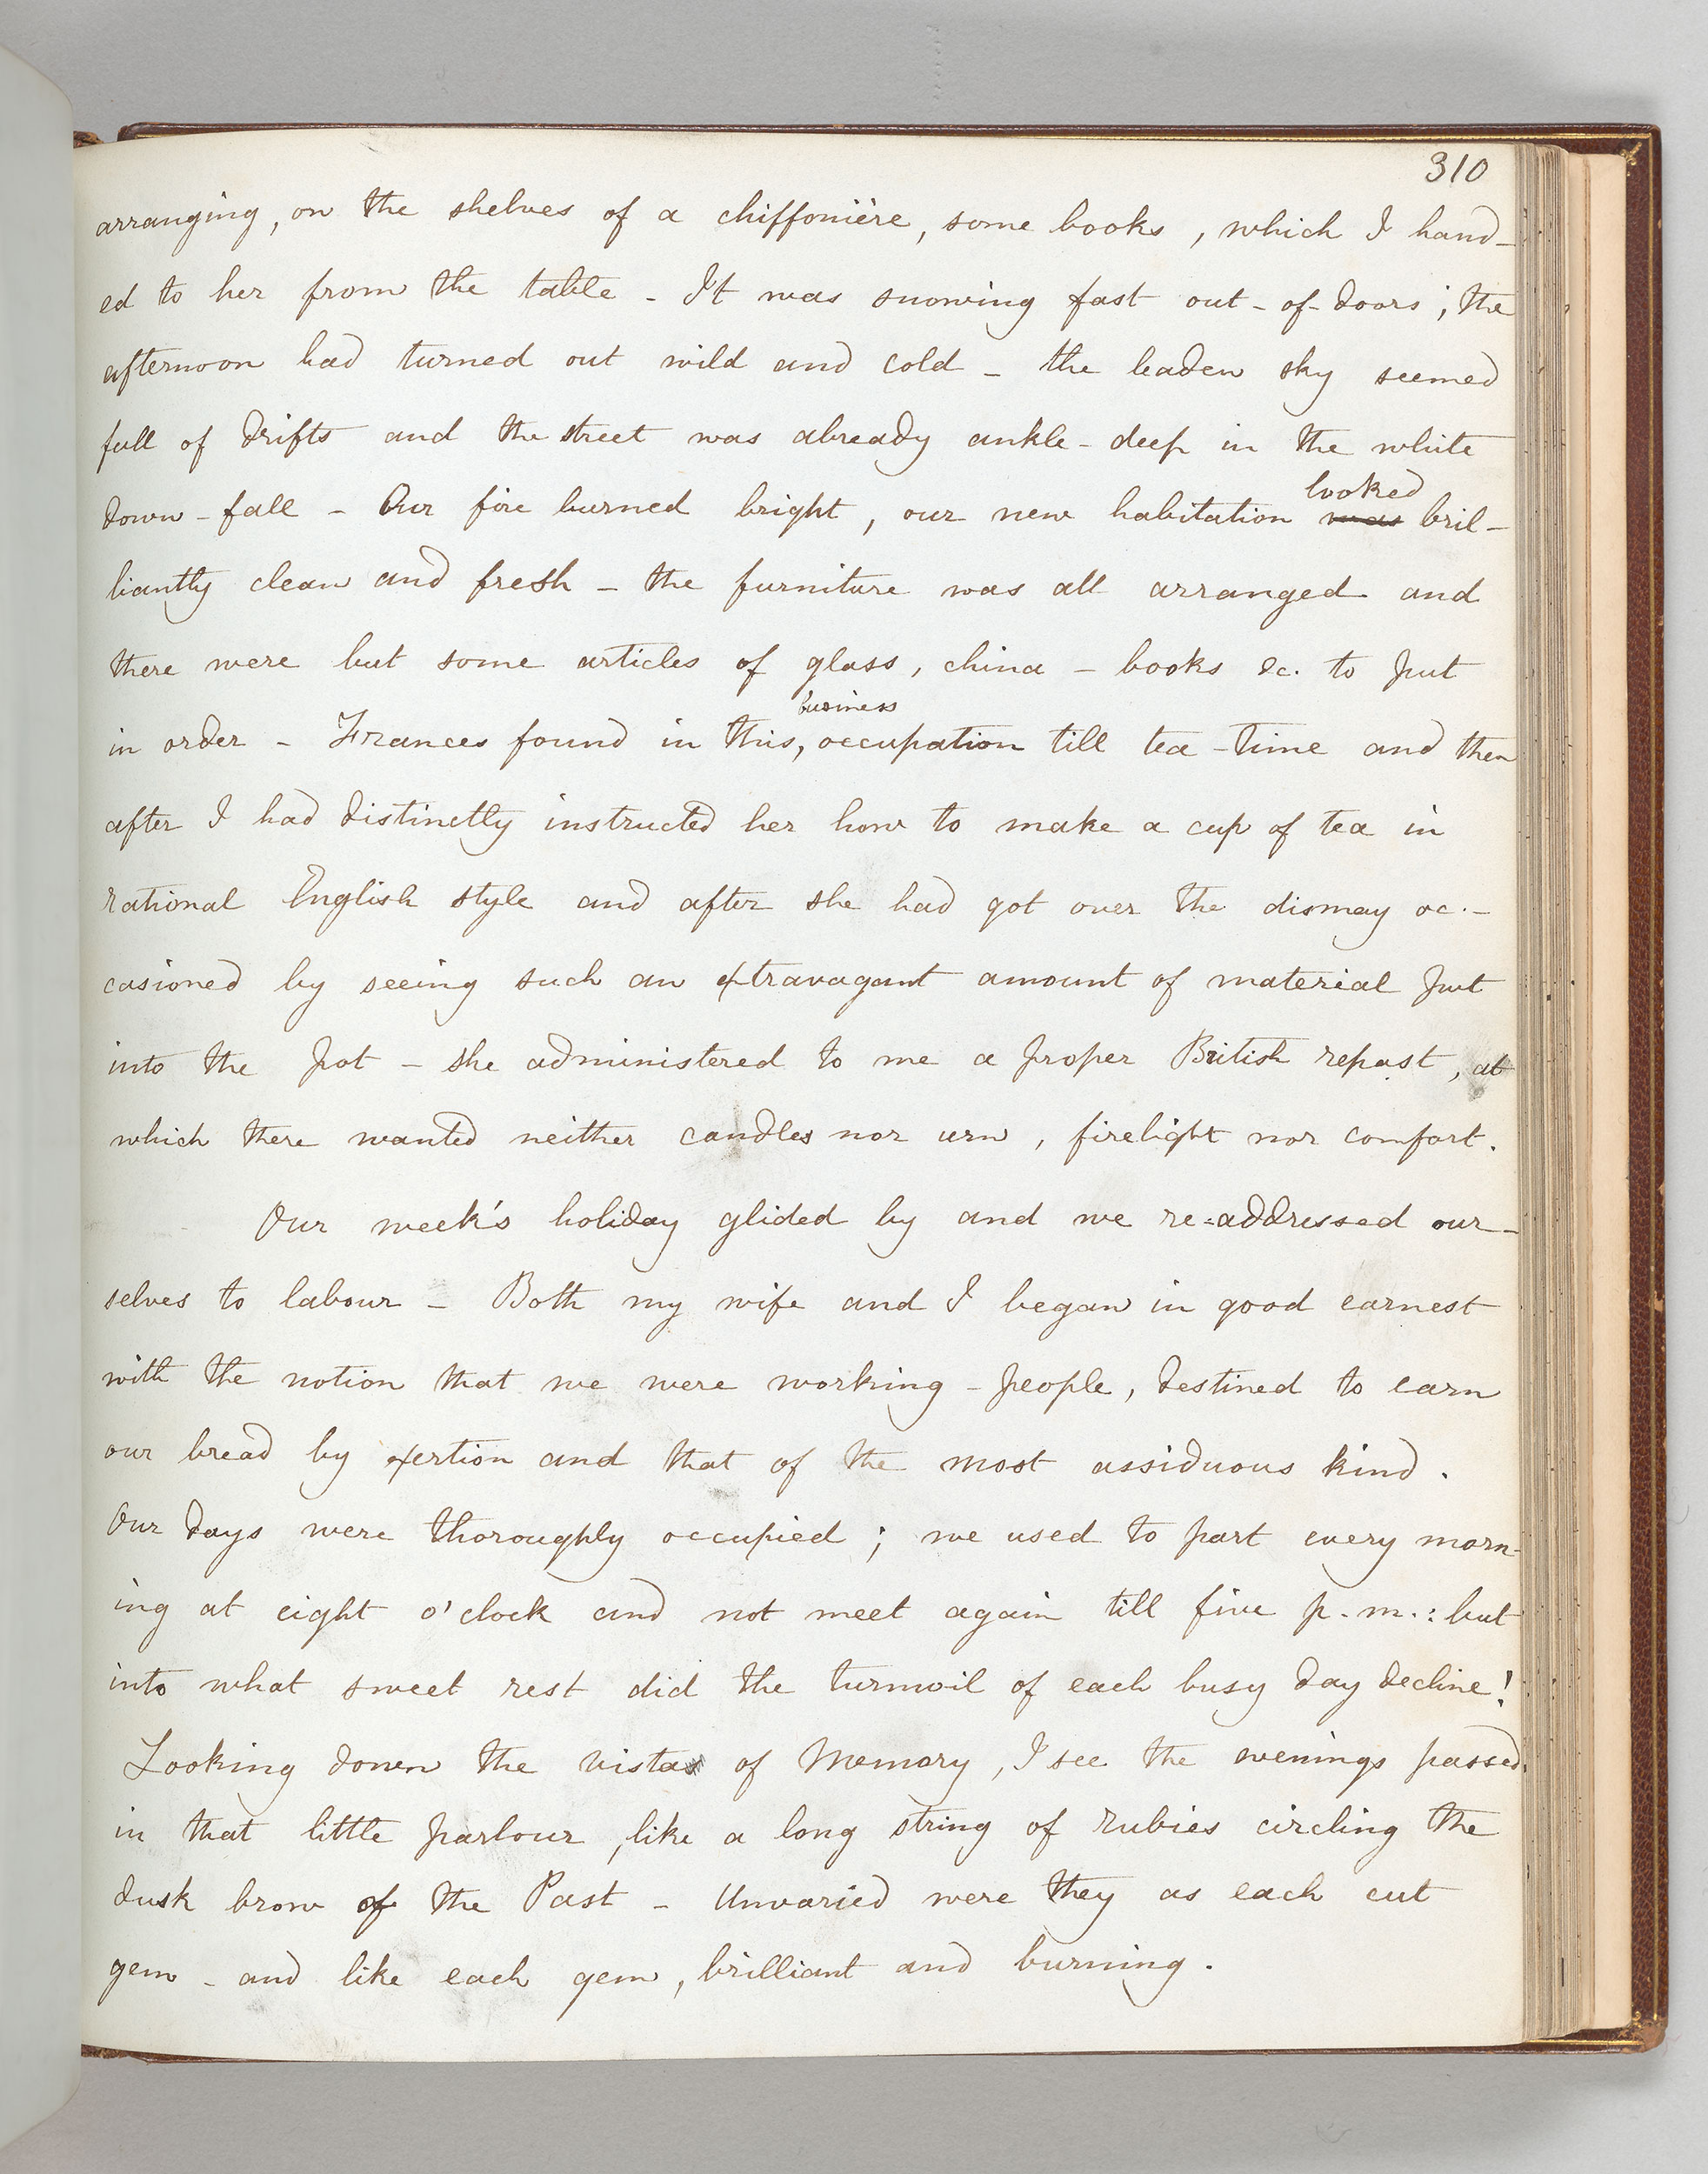 310
arranging, on the shelves of a chiffonière, some books, which I hand-
ed to her from the table - It was snowing fast out-of-doors; the
afternoon had turned out wild and cold - the leaden sky seemed
full of drifts and the street was already ankle-deep in the white
looked
down-fall - Our fire burned bright, our new habitation was bril-
liantly clean and fresh - the furniture was all arranged and
there were but some articles of glass, china - books &c. to put
business
in order - Frances found in this, occupation till tea-time and then
after I had distinctly instructed her how to make a cup of tea in
rational English style and after she had got over the dismay oc-
casioned by seeing such an extravagant amount of material put
into the pot - she administered to me a proper British repast, at
which there wanted neither candles nor urn, firelight nor comfort.
Our week's holiday glided by and we re=addressed our-
selves to labour - Both my wife and I began in good earnest
with the notion that we were working-people, destined to earn
our bread by exertion and that of the most assiduous kind.
Our days were thoroughly occupied; we used to part every morn-
ing at eight o'clock and not meet again till five p.m.: but
into what sweet rest did the turmoil of each busy day decline!
Looking down the vista of Memory, I see the evenings passed
in that little parlour, like a long string of rubies circling the
dusk brow of the Past - Unvaried were they as each cut
gem - and like each gem, brilliant and burning.